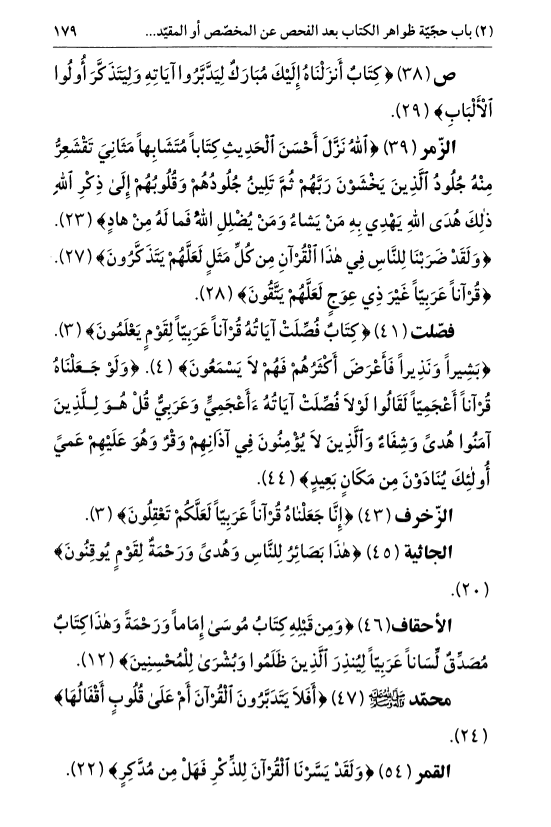 (٢) باب حجّيّة ظواهر الكتاب بعد الفحص عن المخصّص أو المقيّد... ١٧٩
ص (٣٨) ﴿كِتَابٌ أَنزَلْنَاهُ إِلَيْكَ مُبَارَكٌ لِيَدَّبَّرُوا آيَاتِهِ وَلِيَتَذَكَّرَ أُولُوا
ٱلْأَلْبَابِ﴾ (٢٩).
الزّمر (٣٩) ﴿ٱللهُ نَزَّلَ أَحْسَنَ ٱلْحَدِيثِ كِتَاباً مُتَشَابِهاً مَثَانِيَ تَقْشَعِرُّ
مِنْهُ جُلُودُ ٱلَّذِينَ يَخْشَوْنَ رَبَّهُمْ ثُمَّ تَلِينُ جُلُودُهُمْ وَقُلُوبُهُمْ إِلَىٰ ذِكْرِ ٱللهِ
ذٰلِكَ هُدَى ٱللهِ يَهْدِي بِهِ مَنْ يَشَاءُ وَمَنْ يُضْلِلِ ٱللهُ فَما لَهُ مِنْ هادٍ﴾ (٢٣).
﴿وَلَقَدْ ضَرَبْنَا لِلنَّاسِ فِي هٰذَا ٱلْقُرْآنِ مِن كُلِّ مَثَلٍ لَعَلَّهُمْ يَتَذَكَّرُونَ﴾ (٢٧).
﴿قُرْآناً عَرَبِيّاً غَيْرَ ذِي عِوَجٍ لَعَلَّهُمْ يَتَّقُونَ﴾ (٢٨).
فصّلت (٤١) ﴿كِتَابٌ فُصِّلَتْ آيَاتُهُ قُرْآناً عَرَبِيّاً لِقَوْمٍ يَعْلَمُونَ﴾ (٣).
﴿بَشِيراً وَنَذِيراً فَأَعْرَضَ أَكْثَرُهُمْ فَهُمْ لاَ يَسْمَعُونَ﴾ (٤). ﴿وَلَوْ جَعَلْنَاهُ
قُرْآناً أَعْجَمِيّاً لَقَالُوا لَوْلاَ فُصِّلَتْ آيَاتُهُ ءَأَعْجَمِيٌّ وَعَرَبِيٌّ قُلْ هُوَ لِلَّذِينَ
آمَنُوا هُدىً وَشِفَاءٌ وَٱلَّذِينَ لاَ يُؤْمِنُونَ فِي آذَانِهِمْ وَقْرٌ وَهُوَ عَلَيْهِمْ عَمىً
أُولٰئِكَ يُنَادَوْنَ مِن مَكَانٍ بَعِيدٍ﴾ (٤٤).
الزّخرف (٤٣) ﴿إِنَّا جَعَلْنَاهُ قُرْآناً عَرَبِيّاً لَعَلَّكُمْ تَعْقِلُونَ﴾ (٣).
الجاثية (٤٥) ﴿هٰذَا بَصَائِرُ لِلنَّاسِ وَهُدىً وَرَحْمَةٌ لِقَوْمٍ يُوقِنُونَ﴾
(٢٠).
الأحقاف (٤٦) ﴿وَمِن قَبْلِهِ كِتَابُ مُوسَىٰ إِمَاماً وَرَحْمَةً وَهٰذَا كِتَابٌ
مُصَدِّقٌ لِّسَاناً عَرَبِيّاً لِيُنذِرَ ٱلَّذِينَ ظَلَمُوا وَبُشْرَىٰ لِلْمُحْسِنِينَ﴾ (١٢).
محمّد ﷺ (٤٧) ﴿أَفَلاَ يَتَدَبَّرُونَ ٱلْقُرْآنَ أَمْ عَلَىٰ قُلُوبٍ أَقْفَالُهَا﴾
(٢٤).
القمر (٥٤) ﴿وَلَقَدْ يَسَّرْنَا ٱلْقُرْآنَ لِلذِّكْرِ فَهَلْ مِن مُدَّكِرٍ﴾ (٢٢).